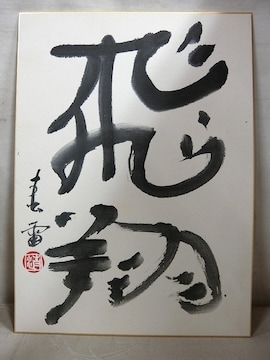 飛翔
春雷